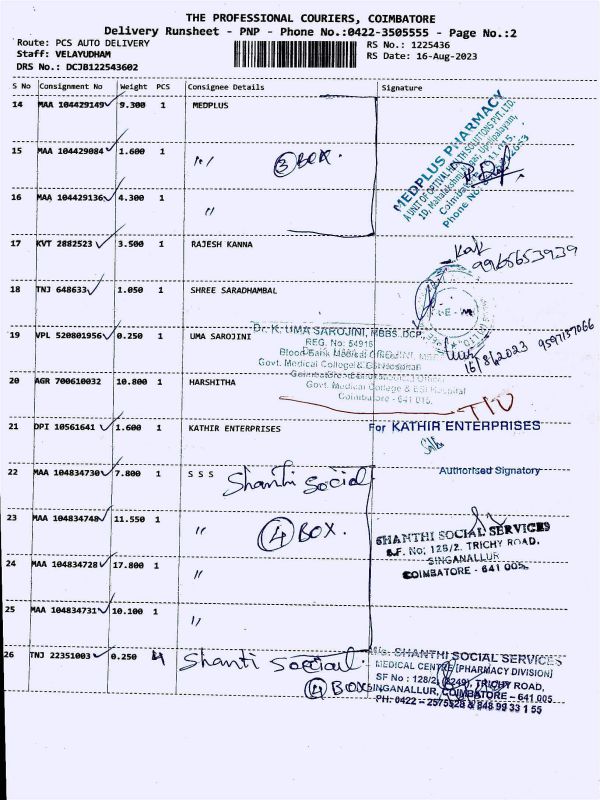 THE PROFESSIONAL COURIERS, COIMBATORE
Delivery Runsheet - PNP - Phone No.:0422-3505555 - Page No.:2
Route: PCS AUTO DELIVERY
RS No.: 1225436
Staff: VELAYUDHAM
RS Date: 16-Aug-2023
DRS No.: DCJB122543602
S No Consignment No Weight PCS Consignee Details Signature
14 MAA 104429149 9.300 1 MEDPLUS
MEDPLUS PHARMACY
A UNIT OF OPTIVAL HEALTH SOLUTIONS PVT. LTD.
15 MAA 104429084 1.600 1 〃 3 BOX.
16 MAA 104429136 4.300 1 〃
17 KVT 2882523 3.500 1 RAJESH KANNA
9965653939
18 TNJ 648633 1.050 1 SHREE SARADHAMBAL
19 VPL 520801956 0.250 1 UMA SAROJINI
Dr. K. UMA SAROJINI, MBBS.,DCP.,
REG. No: 54916
Blood Bank Medical Officer
Govt. Medical College & ESI Hospital
Govt. Medical College & ESI Hospital
Coimbatore - 641 015.
16/8/2023 9597157066
20 AGR 700610032 10.800 1 HARSHITHA
21 DPI 10561641 1.600 1 KATHIR ENTERPRISES
For KATHIR ENTERPRISES
Authorised Signatory
22 MAA 104834730 7.800 1 S S S Shanthi Social
23 MAA 104834748 11.550 1 〃 4 BOX.
SHANTHI SOCIAL SERVICES
S.F. No: 128/2. TRICHY ROAD,
SINGANALLUR
COIMBATORE - 641 005.
24 MAA 104834728 17.800 1 〃
25 MAA 104834731 10.100 1 〃
26 TNJ 22351003 0.250 4 Shanti Social.
4 BOX
M/s. SHANTHI SOCIAL SERVICES
MEDICAL CENTRE [PHARMACY DIVISION]
SF No : 128/2, (2249), TRICHY ROAD,
SINGANALLUR, COIMBATORE - 641 005
PH: 0422 - 2575528 & 848 99 33 1 55